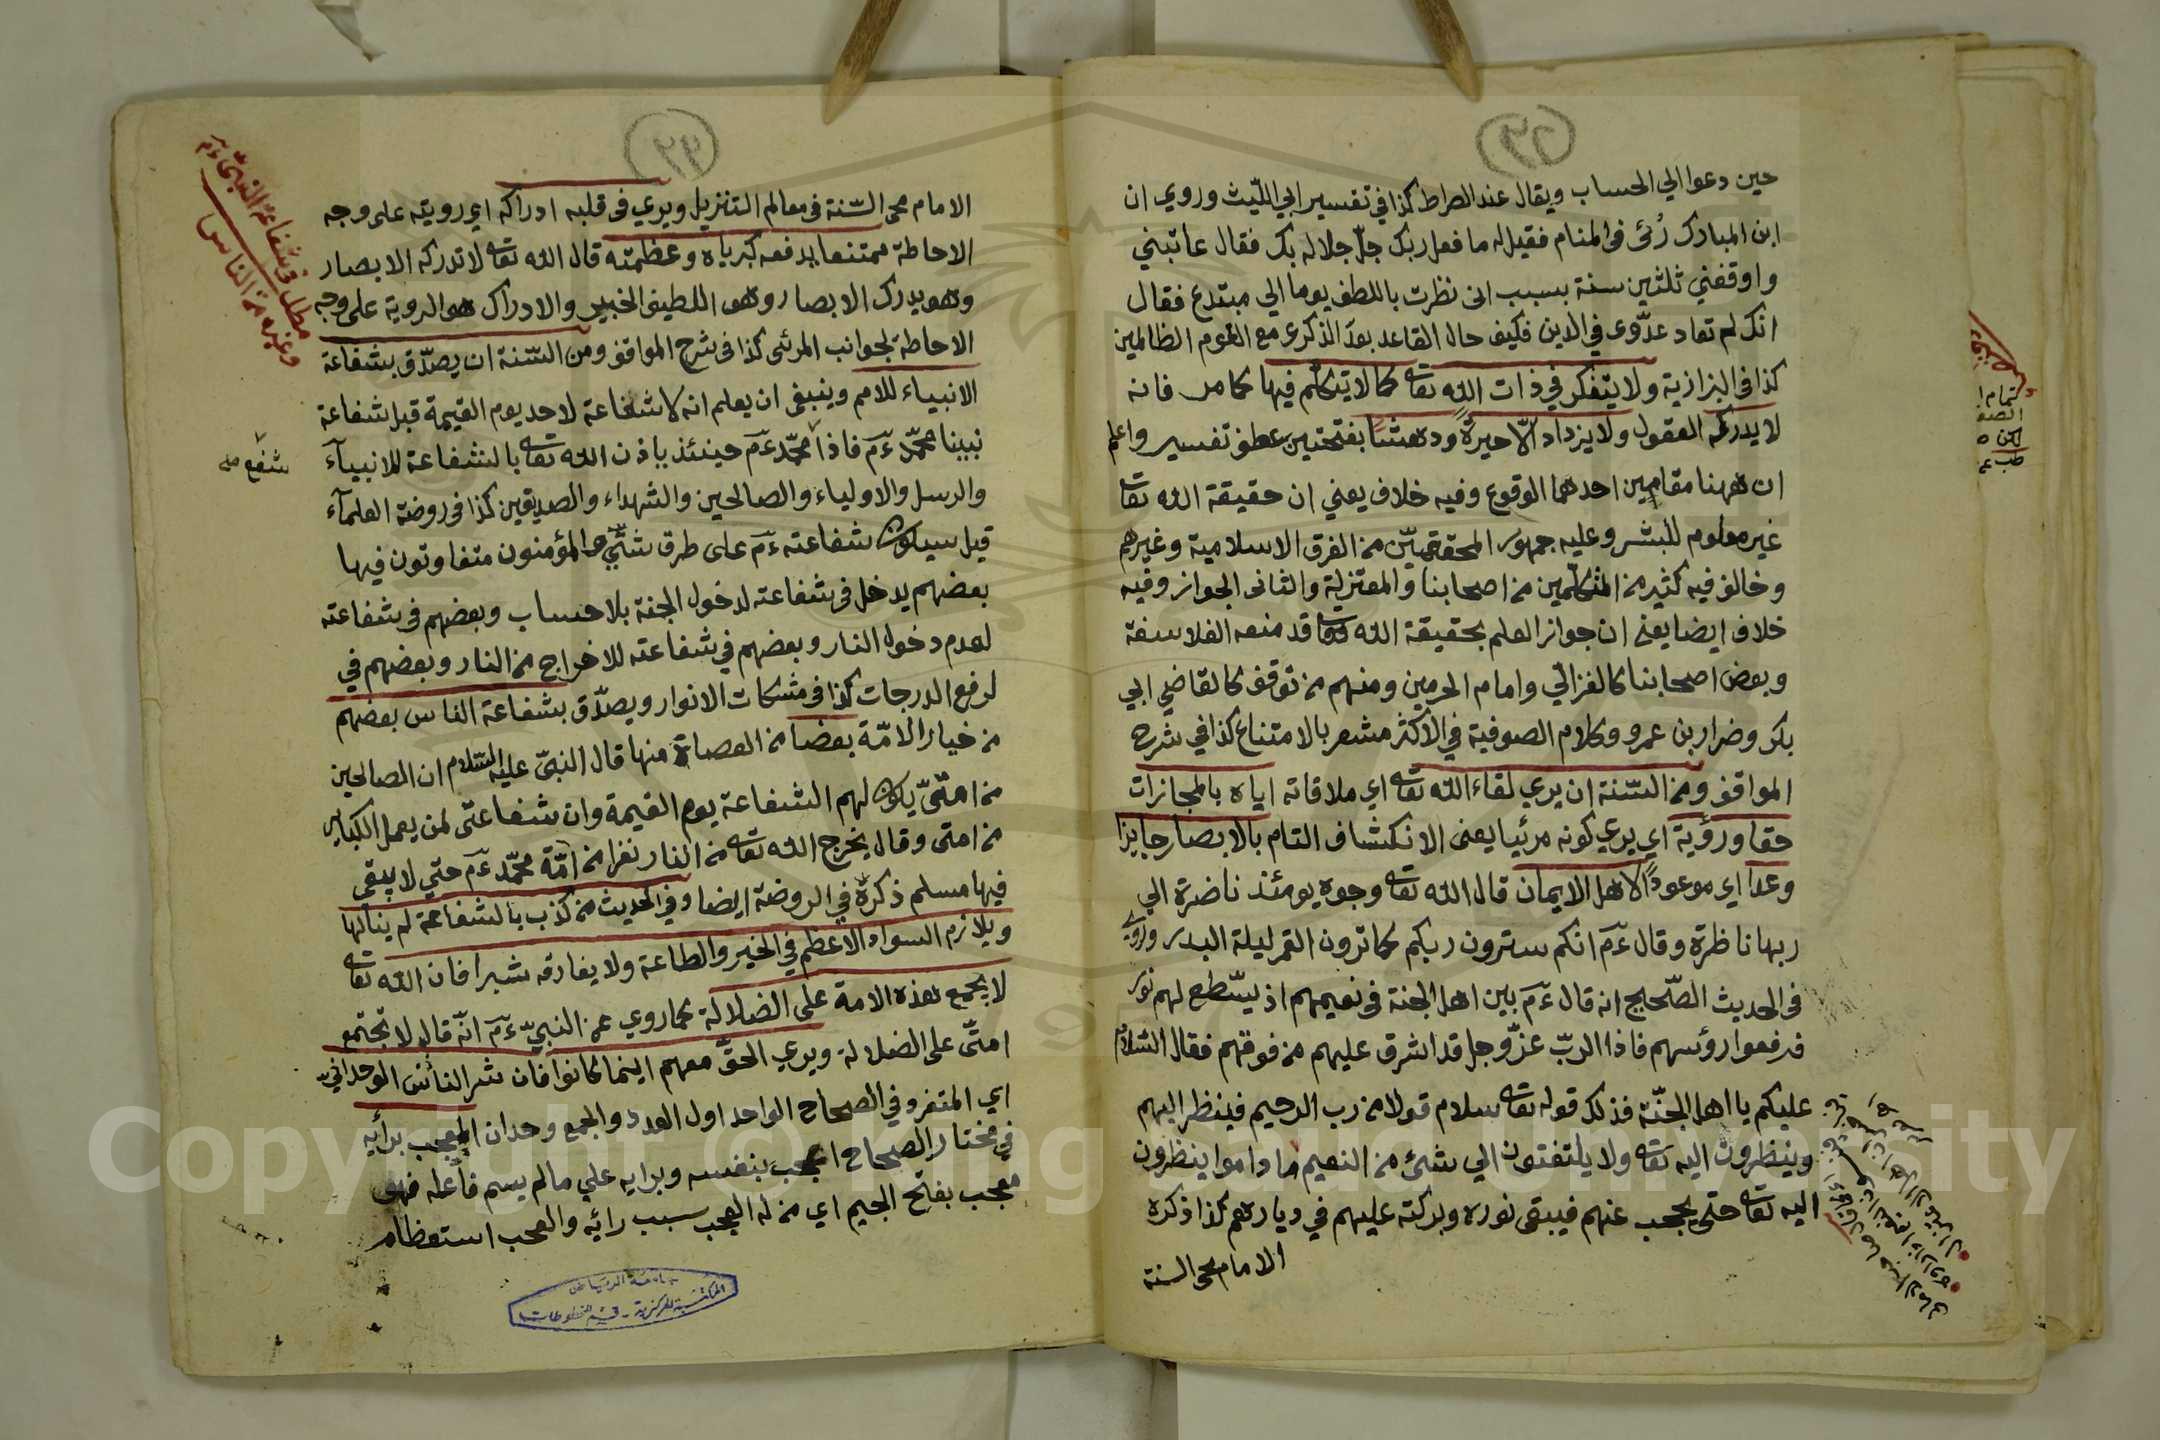 حين دعوا الي الحساب ويقال عند الصراط كذا في تفسير ابي الليث وروي ان
ابن المبارك رُئى فى المنام فقيل له ما فعل ربك جلّ جلاله بك فقال عاتبني
واوقفني ثلثين سنة بسبب انى نظرت باللطف يوما الي مبتدع فقال
انك لم تعاد عدّوى في الدين فكيف حال القاعد بعد الذكرى مع القوم الظالمين
كذا فى البزازية ولا يتفكر في ذات الله تعا كما لا يتكلم فيها كما مر فانه
لا يدركه العقول ولا يزداد الّا حيرةً ودهشًا بفتحتين عطف تفسير واعلم
ان ههنا مقامين احدهما الوقوع وفيه خلاف يعني ان حقيقة الله تعا
غير معلوم للبشر وعليه جمهور المحققين من الفرق الاسلامية وغيرهم
وخالف فيه كثير من المتكلّمين من اصحابنا والمعتزلة والثانى الجواز وفيه
خلاف ايضا يعنى ان جواز العلم بحقيقة الله تعا قد منعه الفلاسفة
وبعض اصحابنا كالغزالي وامام الحرمين ومنهم من توقف كالقاضي ابي
بكر وضرار بن عمرو وكلام الصوفية في الاكثر مشعر بالامتناع كذا في شرح
المواقف ومن السّنة ان يري لقاء الله تعا اي ملاقاته اياه بالمجازات
حقا ورؤية اي يري كونه مرئيا يعنى الانكشاف التام بالابصار جايزا
وعدا اي موعودًا لاهل الايمان قال الله تعا وجوه يومئذ ناضرة الي
ربها ناظرة وقال عم انكم سترون ربكم كما ترون القمر ليلة البدر وروي
فى الحديث الصّحيح انه قال عم بين اهل الجنة فى نعيمهم اذ ليسّطع لهم نور
فرفعوا رؤسهم فاذا الربّ عزّ وجل قد اشرق عليهم من فوقهم فقال السّلام
عليكم يا اهل الجنّة فذلك قوله تعا سلام قولا من رب الرحيم فينظر اليهم
وينظرون اليه تعا ولا يلتفتون الي شئ من النعيم ما داموا ينظرون
اليه تعا حتى يحجب عنهم فيبقى نوره وبركته عليهم في ديارهم كذا ذكره
الامام محى السنة
الامام محى السّنة فى معالم التنزيل ويري فى قلبه ادراكه اي رويته على وجه
الاحاطة ممتنعا يدفعه كبرياه وعظمته قال الله تعا لا تدركه الابصار
وهو يدرك الابصار وهو اللطيف الخبير والادراك هو الروية على وجه
الاحاطة بجوانب المرئى كذا فى شرح المواقف ومن السّنة ان يصدّق بشفاعة
الانبياء للامم وينبغى ان يعلم انه لا شفاعة لاحد يوم القيمة قبل شفاعة
نبينا محمّد عم فاذا محمّد عم حينئذ باذن الله تعا بالشفاعة للانبيآء
شفع
والرسل والاولياء والصالحين والشهداء والصديقين كذا فى روضة العلمآء
قيل سيكون شفاعته عم على طرق شتّي والمؤمنون متفاوتون فيها
بعضهم يدخل فى شفاعته لدخول الجنة بلا حساب وبعضهم فى شفاعته
لعدم دخول النار وبعضهم في شفاعته للاخراج من النار وبعضهم في
لرفع الدرجات كذا فى مشكات الانوار ويصدّق بشفاعة الناس بعضهم
من خيار الامّة بعضا من العصاة منها قال النبىّ عليه السّلام ان الصالحين
من امتىّ يكون لهم الشفاعة يوم القيمة وان شفاعتى لمن يعمل الكباير
من امتى وقال يخرج الله تعا من النار نفرا من امّة محمّد عم حتي لا يبقى
فيها مسلم ذكره في الروضة ايضا وفي الحديث من كذب بالشفاعة لم ينالها
ويلازم السواد الاعظم في الخير والطاعة ولا يفارقه شبرا فان الله تعا
لا يجمع هذه الامة على الضلالة كما روي عن النبيّ عم انّه قال لا تجتمع
امتّى على الضلالة ويري الحقّ معهم اينما كانوا فان شر الناس الوحدانيّ
اي المتفرد في الصحاح الواحد اول العدد والجمع وحدان المعجب برأيه
في مختار الصحاح اعجب بنفسه وبرايه علي ما لم يسم فاعله فهو
معجب بفتح الجيم اي من له العجب بسبب رائيه والعجب استعظام
مطلب فى شفاعة النبىّ عم
وغيره من الناس
جامعة الرياض
المكتبة المركزية - قسم المخطوطات
Copyright © King Saud University